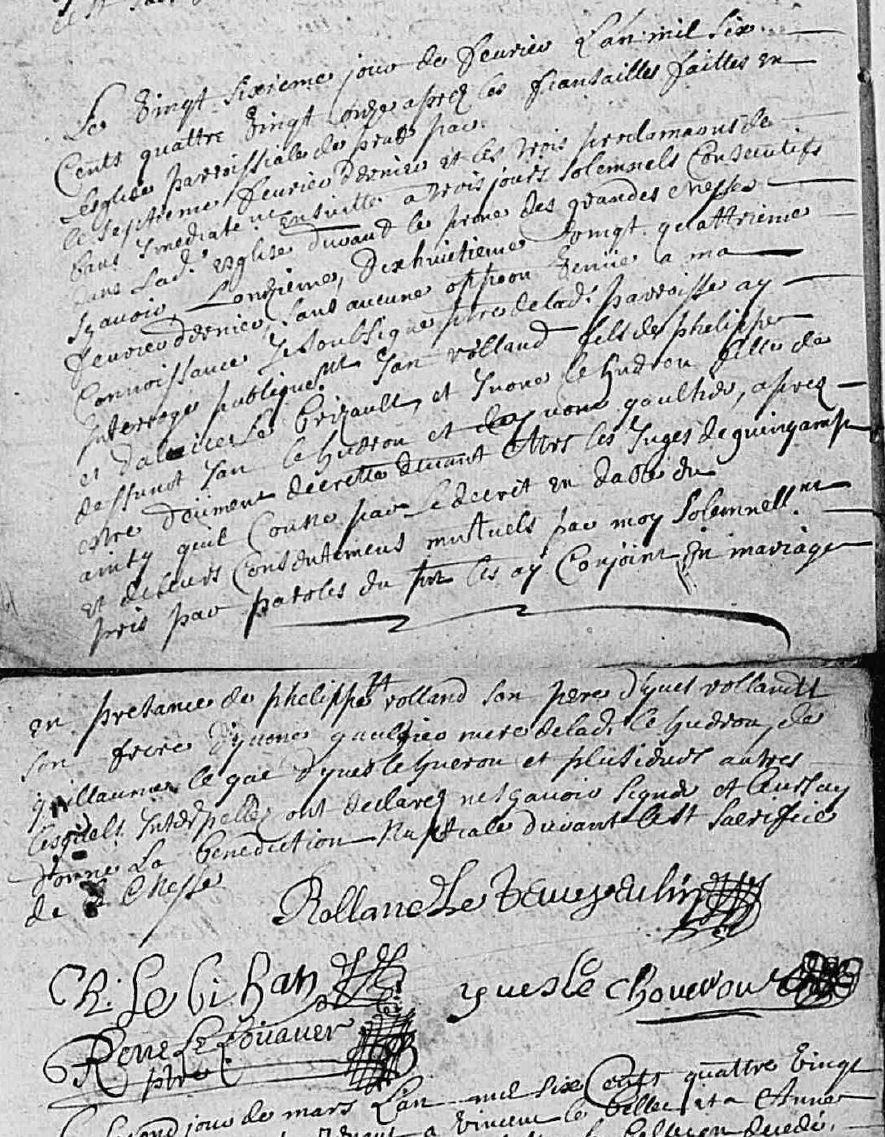 Le Vingt Sixieme jour de feuvrier L'an mil six
Cents quattre Vingt onze aprez les fiansailles faittes en
L'esglise parroissiale de par
le septieme feuvrier dernier et les trois proclamaons de
bans Imediatemt ensuitte a trois jours solemnels Consecutifs
dans Lad. esglise durant le prone des grandes Messes
Sçavoir, L'onzieme, dixhuictieme vingt quattrieme
feuvrier dernier, sans aucune oppoon venüe a ma
Connoissance Je soubsigne ptre de lad. parroisse ay
Interroge publiquemt Jan rolland fils de phelippe
et d' Le Brizault, et Yvone le hudrou fille de
deffunct Jan le hudrou et d'yvone gaultier, aprez
estre deüment decretté devant Mrs les Juges de guingamp
ainsy quil Conste par Le decrit en datte du
et de leurs Consentements mutuels par moy solemnellmt
pris par paroles du pnt les ay Conjoint en mariage
en presance de phelippe rolland son pere d'yves rolland
son frere d'yvone gaultier mere de lad. le hudrou, de
guillaume le gac d'yves le hueron et plusieurs autres
lesquels Interpellez ont declarez ne sçavoir signer et leur ay
donné La benediction Nuptiale durant le St Sacrifice
de La Messe
Rolland Le
Ch. Le bihan yves le
Rene Le
ptre
jour de mars L'an mil six Cents quattre Vingt
a Vincent le bellec et a Anne